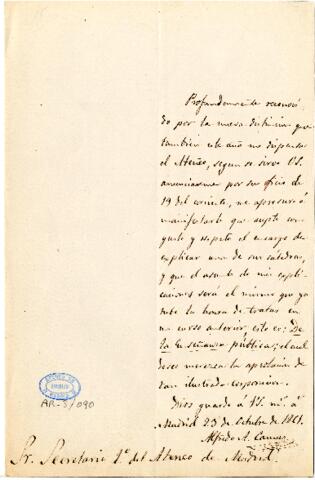 Profundamente reconoci-
do por la nueva distincion que
tambien este año me dispensa
el Ateneo, segun se sirve VS.
anunciarme por su oficio de
19 del corriente, me apresuro á
manifestarle que acepto con
gusto y respeto el encargo de
explicar una de sus cátedras,
y que el asunto de mis expli-
caciones será el mismo que ya
tube la honra de tratar en
un curso anterior, esto es: De
la Enseñanza pública; el cual
deseo merezca la aprobacion de
tan ilustrada corporacion.
Dios guarde á VS. m.s a.s
Madrid 23 de Octubre de 1861.
Alfredo A. Camus
ATENEO DE
MADRID
AR-S/090
Sr. Secretario 1.º del Ateneo de Madrid.